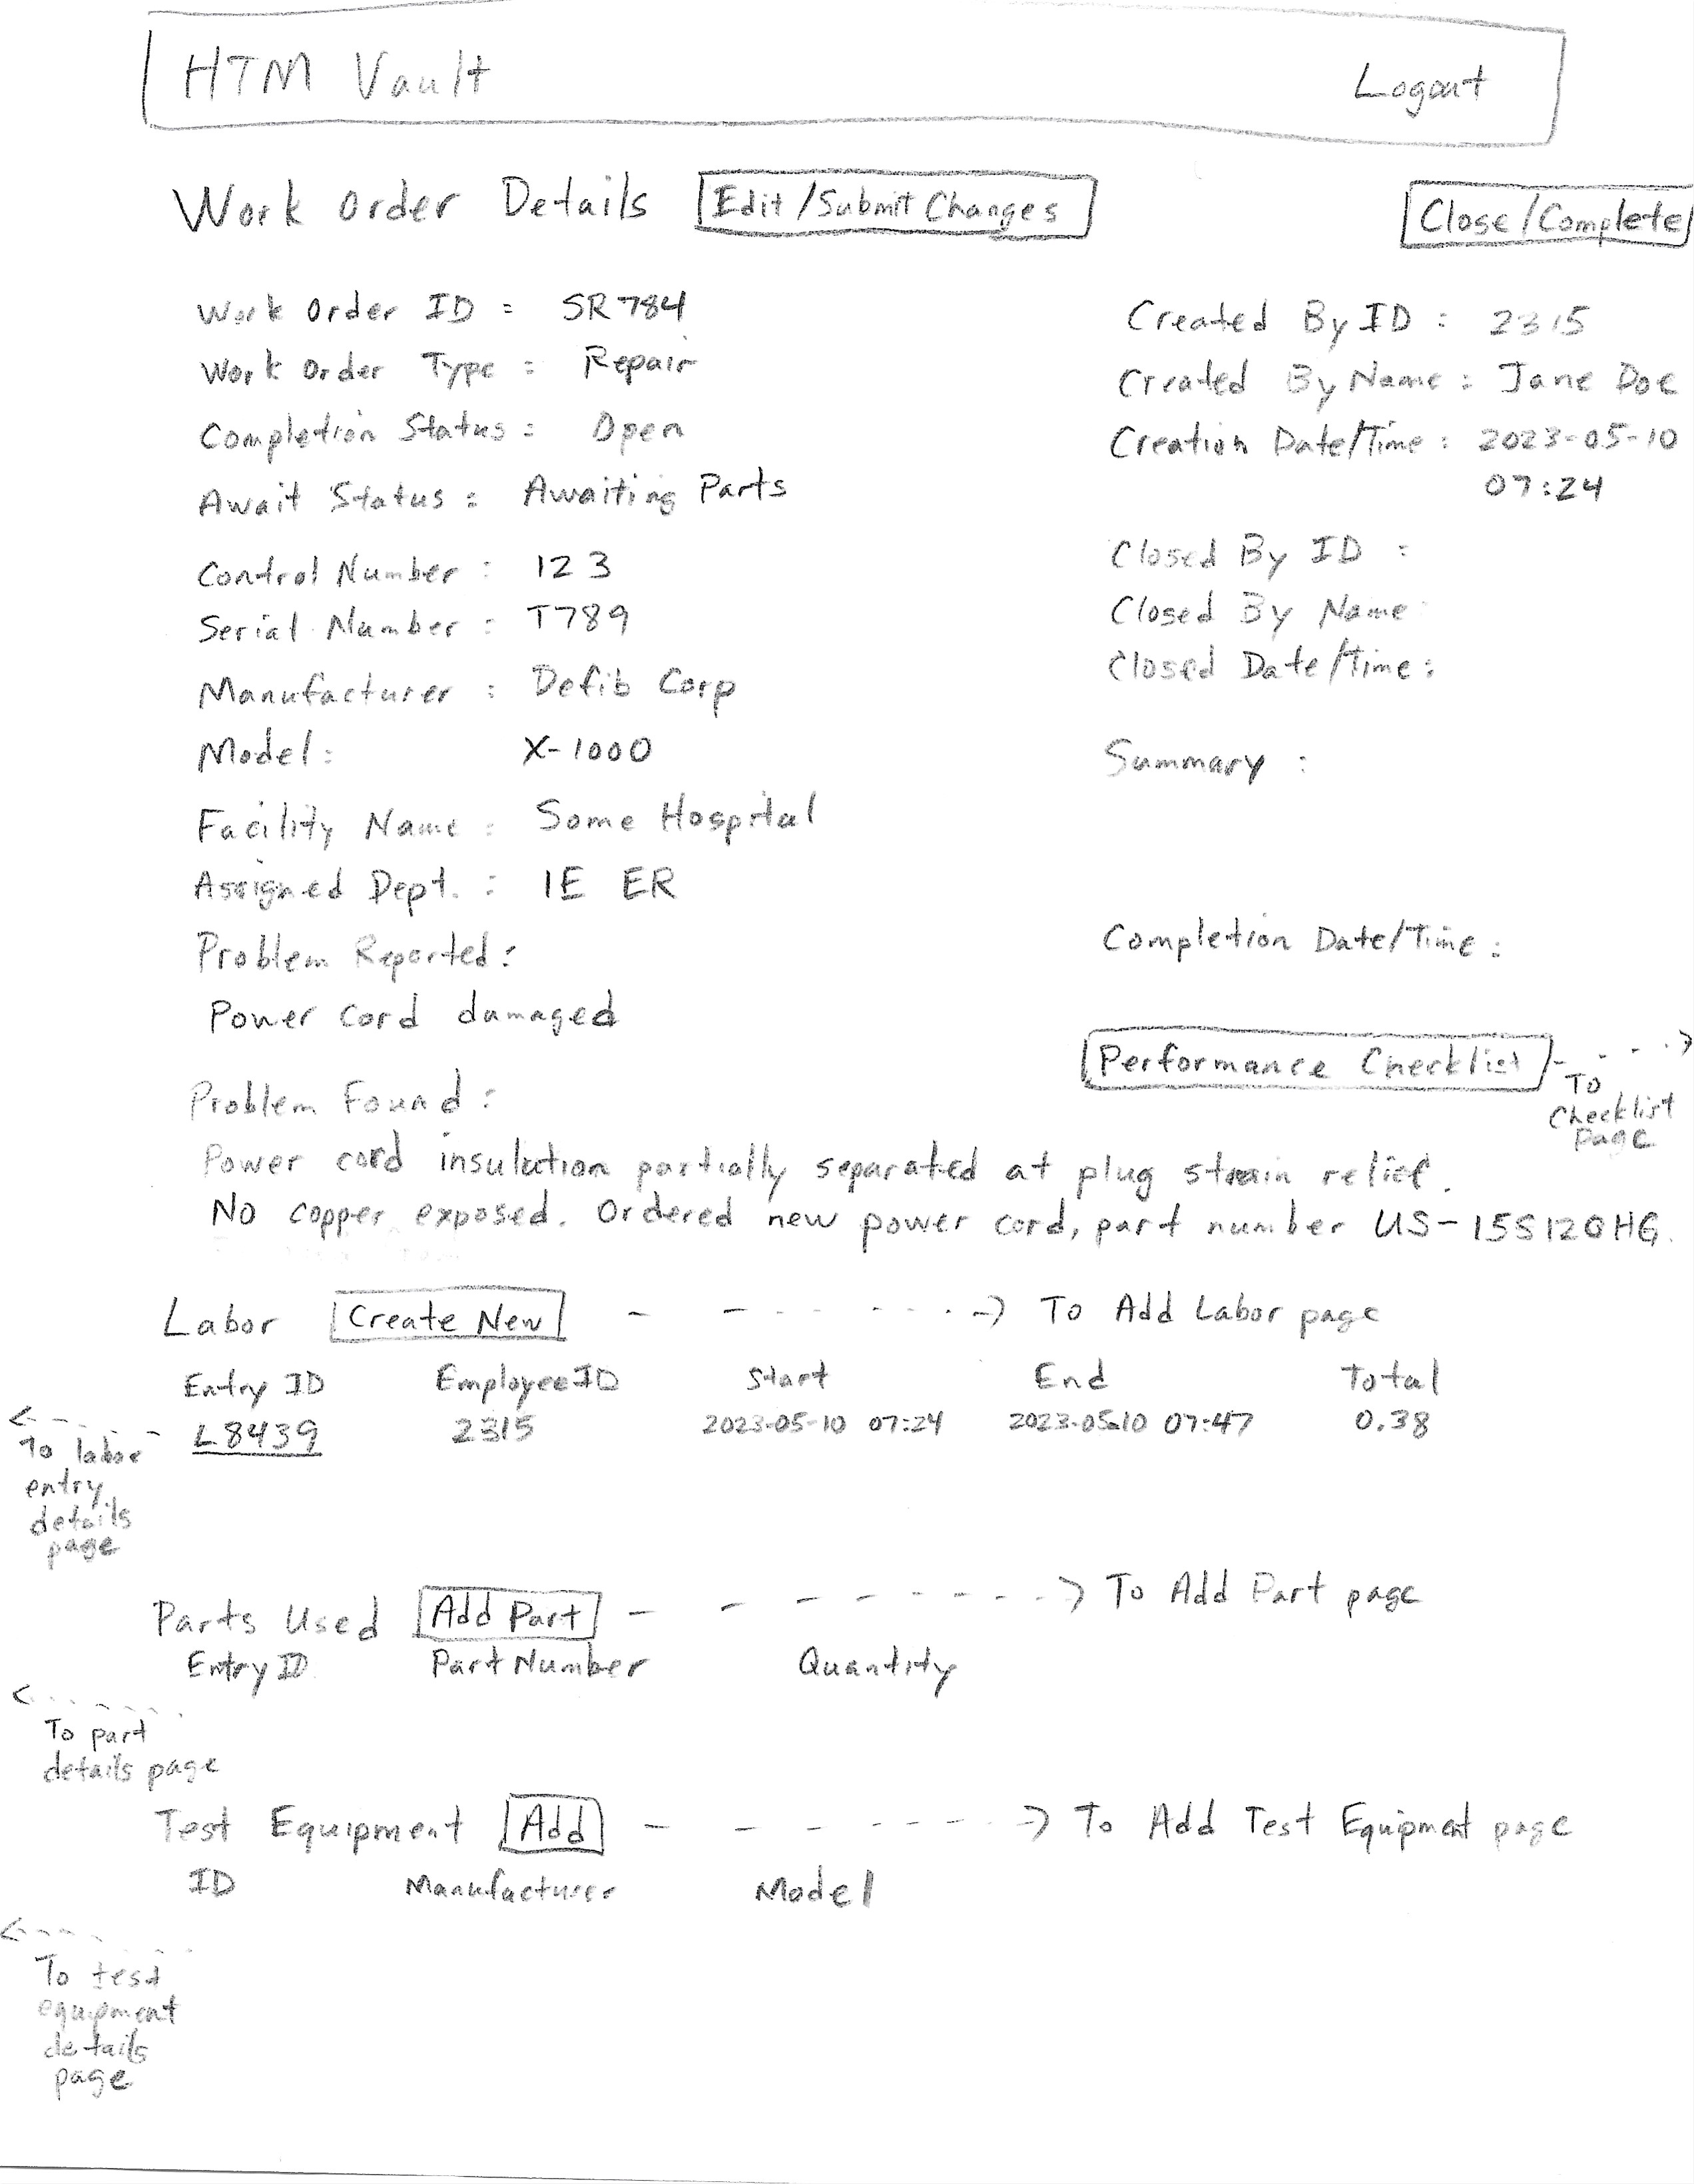 HTM Vault Logout
Work Order Details Edit/Submit Changes Close/Complete
Work Order ID : SR784
Work Order Type : Repair
Completion Status : Open
Await Status : Awaiting Parts
Control Number : 123
Serial Number : T789
Manufacturer : Defib Corp
Model : X-1000
Facility Name : Some Hospital
Assigned Dept. : 1E ER
Problem Reported :
Power cord damaged
Created By ID : 2315
Created By Name : Jane Doe
Creation Date/Time : 2023-05-10
07:24
Closed By ID :
Closed By Name :
Closed Date/Time :
Summary :
Completion Date/Time :
Performance Checklist
To
Checklist
page
Problem Found :
Power cord insulation partially separated at plug strain relief.
No copper exposed. Ordered new power cord, part number US-15S120HG.
Labor Create New To Add Labor page
Entry ID Employee ID Start End Total
L8439 2315 2023-05-10 07:24 2023-05-10 07:47 0.38
To labor
entry
details
page
Parts Used Add Part To Add Part page
Entry ID Part Number Quantity
To part
details page
Test Equipment Add To Add Test Equipment page
ID Manufacturer Model
To test
equipment
details
page